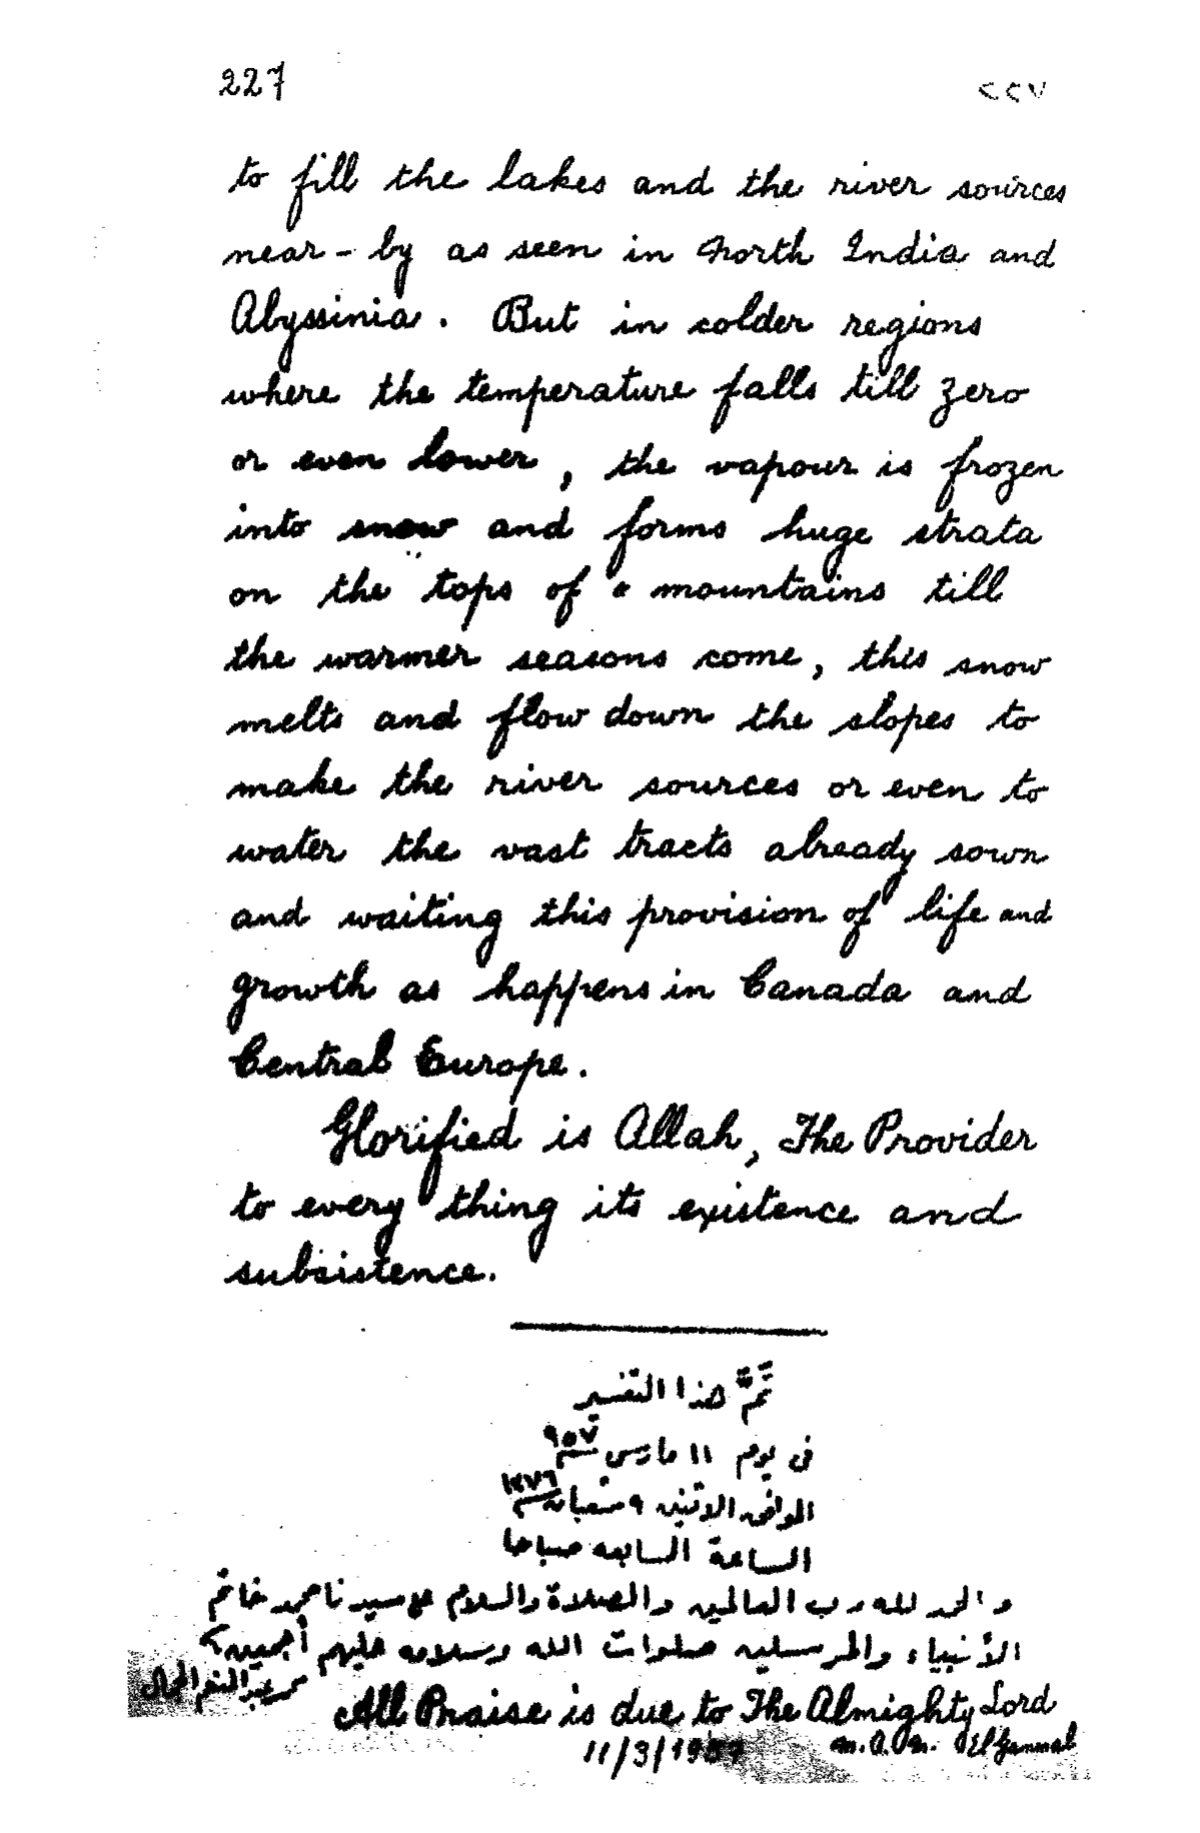 227 ٢٢٧
to fill the lakes and the river sources
near - by as seen in North India and
Abyssinia. But in colder regions
where the temperature falls till zero
or even lower, the vapour is frozen
into snow and forms huge strata
on the tops of mountains till
the warmer seasons come, this snow
melts and flow down the slopes to
make the river sources or even to
water the vast tracts already sown
and waiting this provision of life and
growth as happens in Canada and
Central Europe.
Glorified is Allah, The Provider
to every thing its existence and
subsistence.
تمَّ هذا التفسير
فى يوم ١١ مارس سنة ٩٥٧
الموافق الاثنين ٩ شعبان سنة ١٣٧٦
الساعة السابعه صباحا
والحمد لله رب العالمين والصلاة والسلام على سيدنا محمد خاتم
الأنبياء والمرسلين صلوات الله وسلامه عليهم أجمعين
محمد عبد المنعم الجمال
All Praise is due to The Almighty Lord
M. A. M. El Gammal
11/3/1957